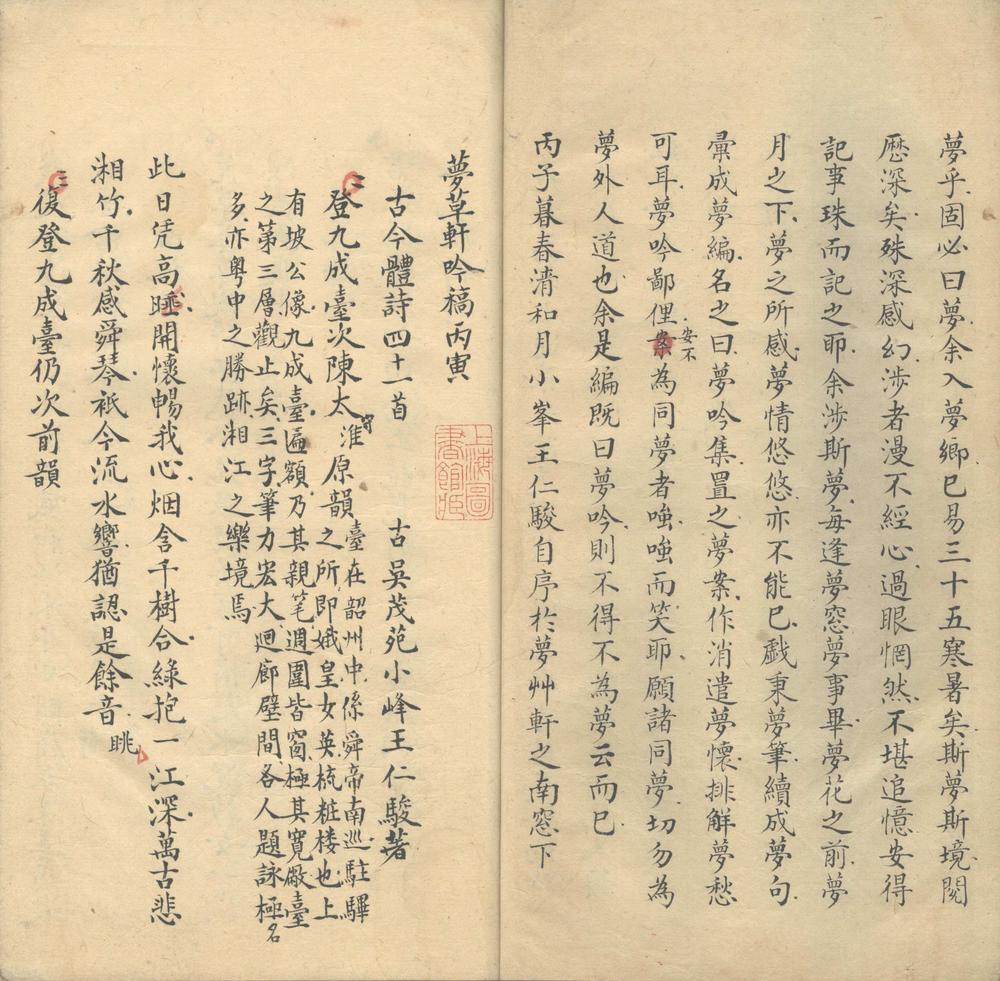 夢乎固必曰夢余入夢鄉已易三十五寒暑矣斯夢斯境閱
歷深矣殊深感幻涉者漫不經心過眼惘然不堪追憶安得
記事珠而記之耶余涉斯夢每逢夢窓夢事畢夢花之前夢
月之下夢之所感夢情悠悠亦不能已戲秉夢筆續成夢句
彚成夢編名之曰夢吟集置之夢案作消遣夢懷排解夢愁
可耳夢吟鄙俚為同夢者嗤嗤而笑耶願諸同夢切勿為
安不
夢外人道也余是編既曰夢吟則不得不為夢云而已
丙子暮春清和月小峯王仁駿自序於夢艸軒之南窓下
上海圖
書館所
夢草軒吟稿丙寅
古今體詩四十一首 古吳茂苑小峰王仁駿著
登九成臺次陳太淮原韻
守
臺在韶州中係舜帝南巡駐驆
之所即娥皇女英梳粧楼也上
有坡公像九成臺匾額乃其親笔週圍皆窗極其寬厰臺
之第三層觀止矣三字筆力宏大迴廊壁間各人題詠極
名
多亦粵中之勝跡湘江之樂境焉
此日凭高開懷暢我心烟含千樹合綠抱一江深萬古悲
眺
湘竹千秋感舜琴祇今流水響猶認是餘音
復登九成臺仍次前韻